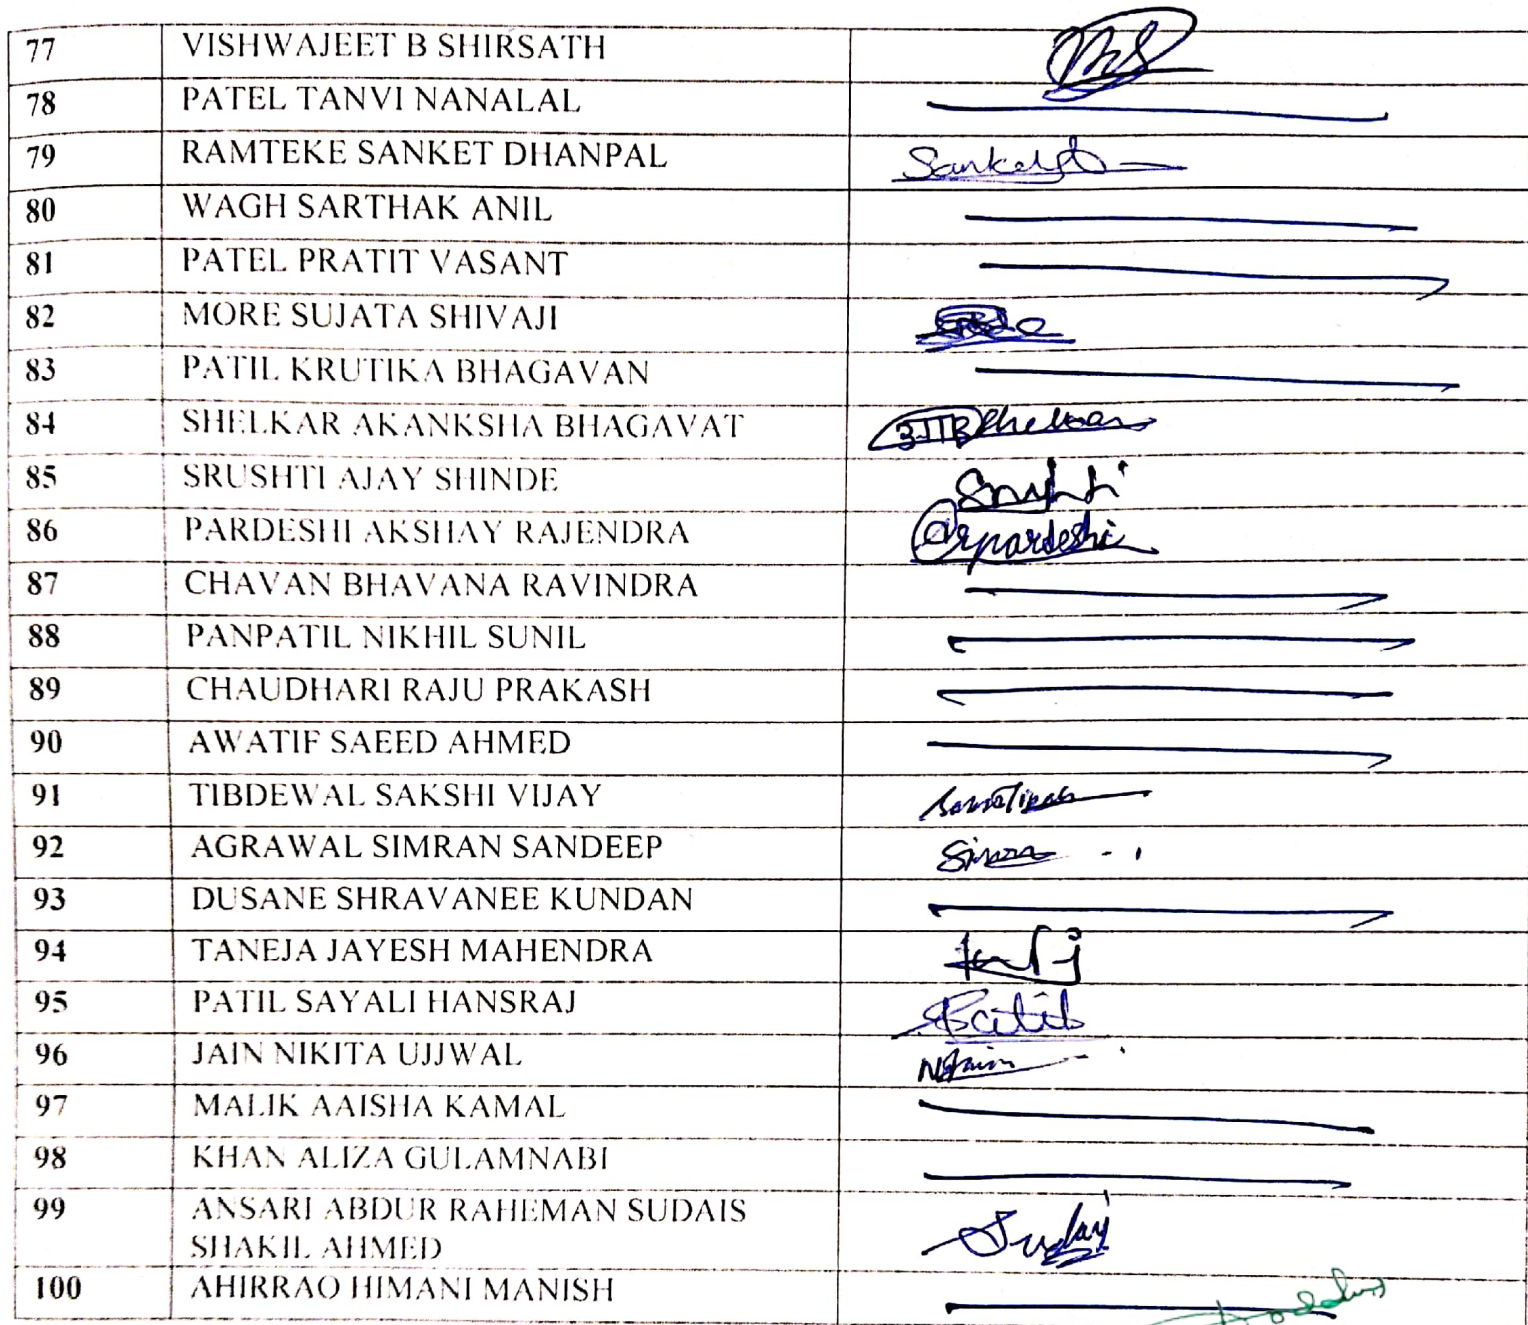 77 VISHWAJEET B SHIRSATH
78 PATEL TANVI NANALAL
79 RAMTEKE SANKET DHANPAL
80 WAGH SARTHAK ANIL
81 PATEL PRATIT VASANT
82 MORE SUJATA SHIVAJI
83 PATIL KRUTIKA BHAGAVAN
84 SHELKAR AKANKSHA BHAGAVAT
85 SRUSHTI AJAY SHINDE
86 PARDESHI AKSHAY RAJENDRA arpardeshi
87 CHAVAN BHAVANA RAVINDRA
88 PANPATIL NIKHIL SUNIL
89 CHAUDHARI RAJU PRAKASH
90 AWATIF SAEED AHMED
91 TIBDEWAL SAKSHI VIJAY
92 AGRAWAL SIMRAN SANDEEP
93 DUSANE SHRAVANEE KUNDAN
94 TANEJA JAYESH MAHENDRA
95 PATIL SAYALI HANSRAJ
96 JAIN NIKITA UJJWAL NJain
97 MALIK AAISHA KAMAL
98 KHAN ALIZA GULAMNABI
99 ANSARI ABDUR RAHEMAN SUDAIS
SHAKIL AHMED
100 AHIRRAO HIMANI MANISH